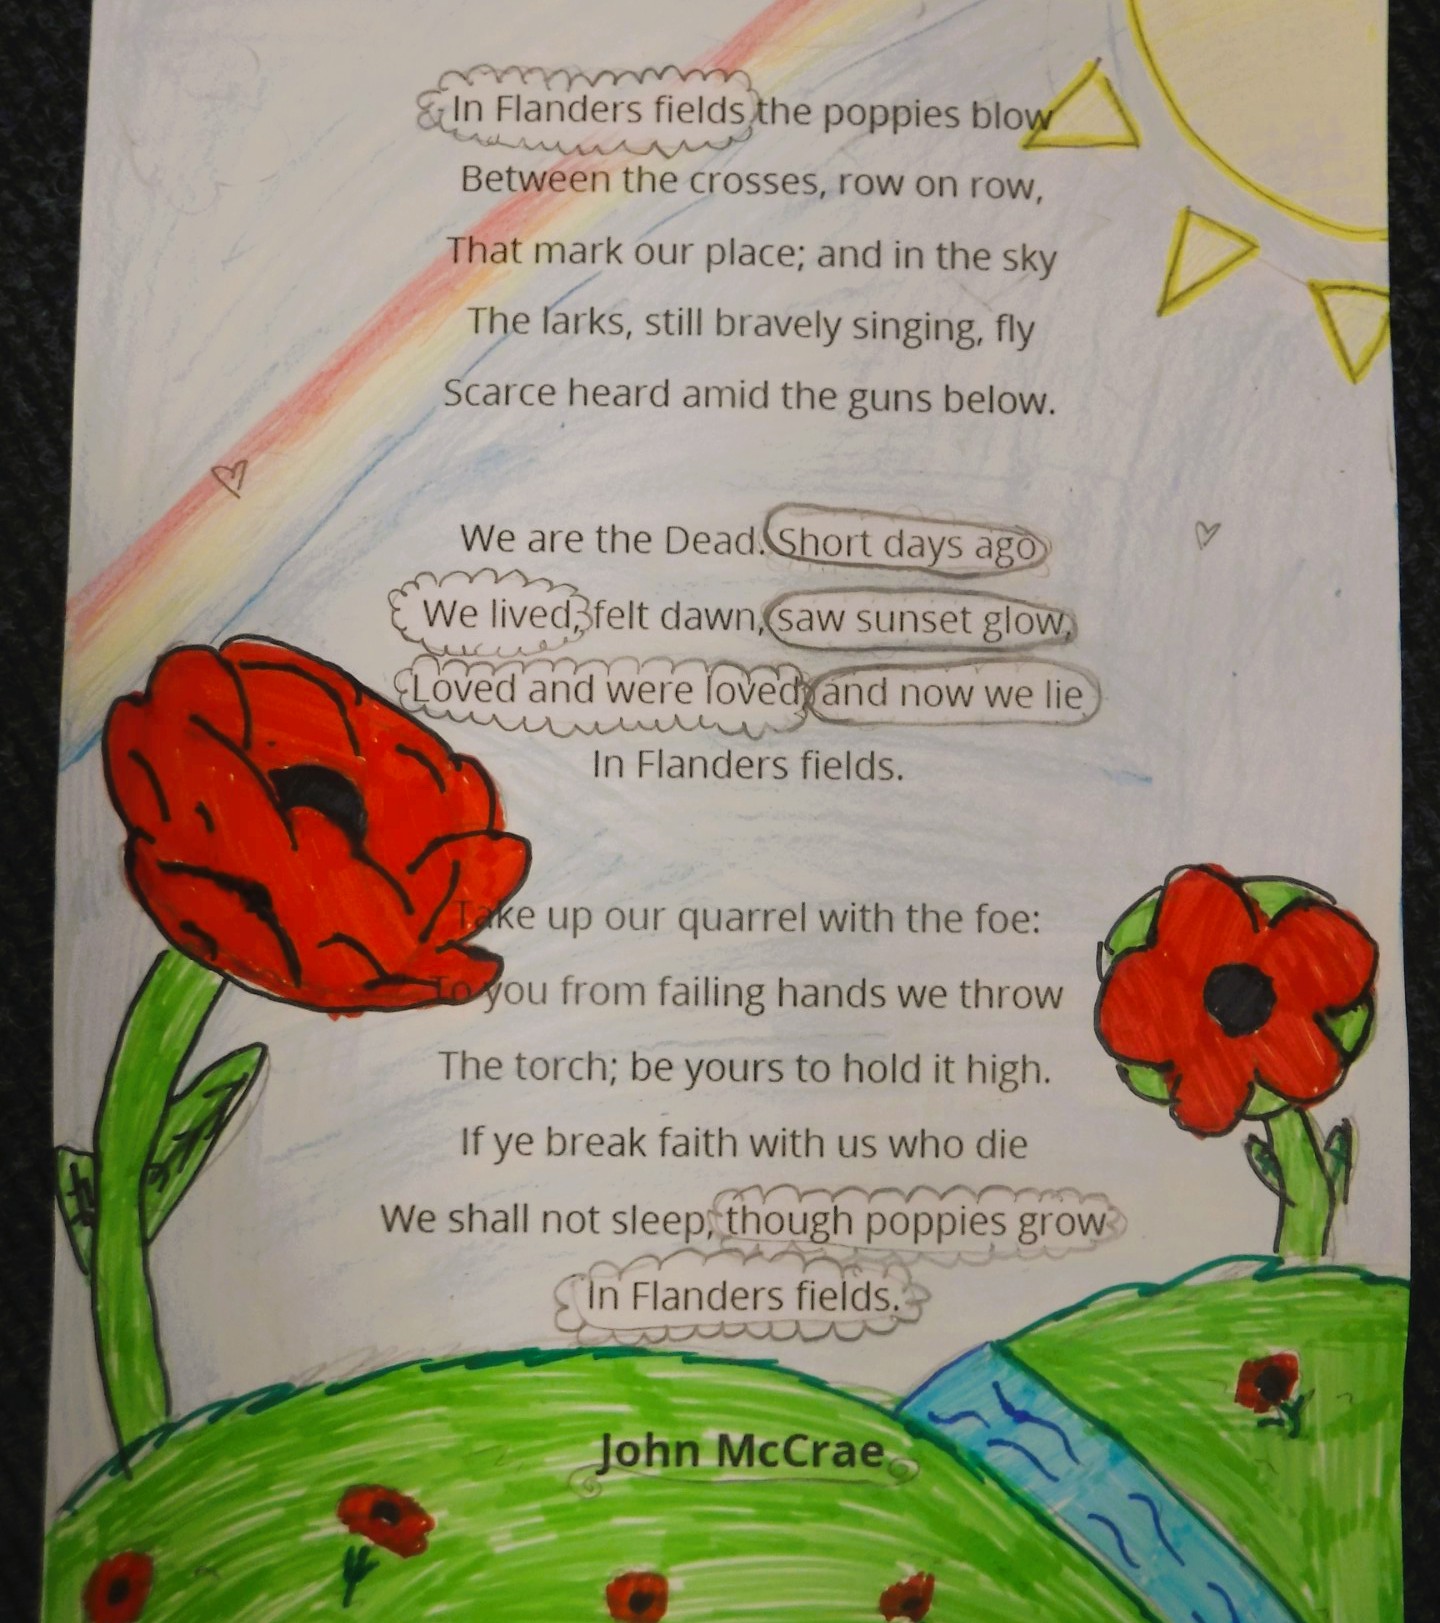 In Flanders fields the poppies blow
Between the crosses, row on row,
That mark our place; and in the sky
The larks, still bravely singing, fly
Scarce heard amid the guns below.
We are the Dead. Short days ago
We lived, felt dawn, saw sunset glow,
Loved and were loved, and now we lie
In Flanders fields.
Take up our quarrel with the foe:
To you from failing hands we throw
The torch; be yours to hold it high.
If ye break faith with us who die
We shall not sleep, though poppies grow
In Flanders fields.
John McCrae